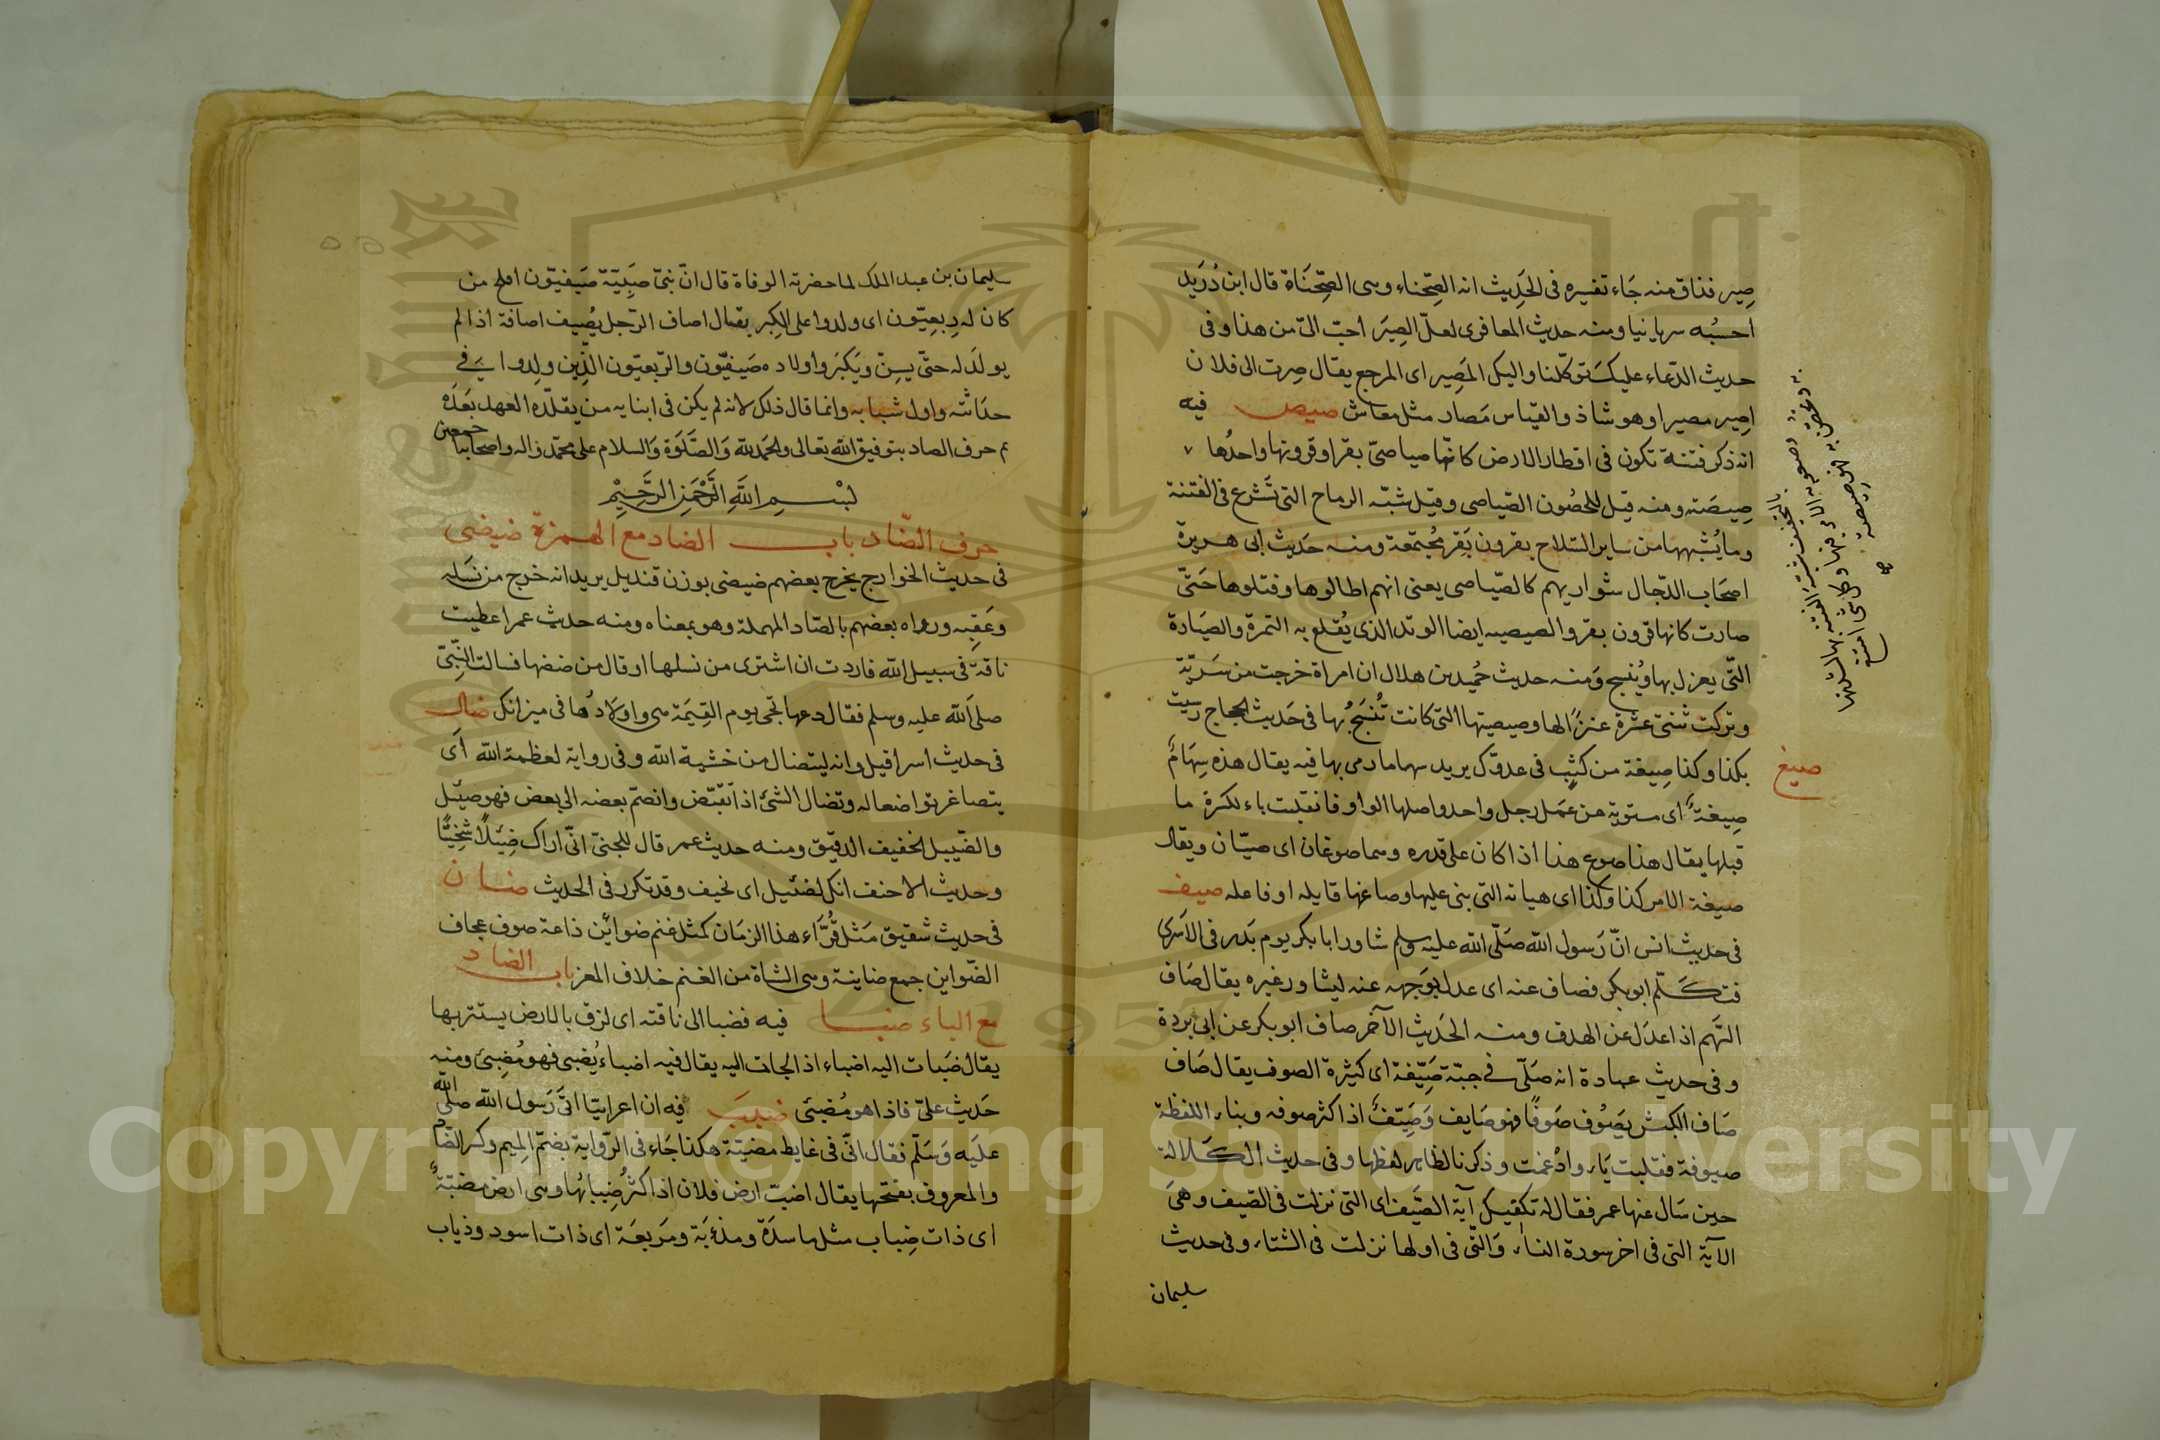 صِير فذاق منه جَاء تفسيره فى الحَدِيث انه الصِّحناء وهى الصِّحنَاة قال ابن دُرَيد
احسُبه سريانيا ومنه حديث المعافرى لعلّ الصِيرَ احبّ الىّ من هذا وفى
حديث الدّعاء عليكَ توكّلنا واليكَ المَصِير اى المرجع يقال صِرت الى فلان
اصِير مصيرا وهو شاذ والقيَاس مَصار مثل معَاش صيص فيه
انه ذكر فتنة تكون فى اقطار الارض كانّها صياصىّ بقر اى قرونها واحدُها
صِيصَته ومنه قيل للحصُون الصّياصى وقيل شبّه الرماح التى تَشرع فى الفتنة
وما يُشبهها من ساير السّلاح بقرون بَقر مُجتمعة ومنه حَديث ابى هريرة
اصحَاب الدّجال شواربهم كالصّياصى يعنى انهم اطالوها وفتلوها حَتّى
صارت كانها قرون بقر والصيصيه ايضا الوتد الذى يُقلع به التمرة والصَبارة
التّى يعزل بها ويُنسج وَمنه حديث حُميد بن هلال ان امراة خرجت من سَريّة
وتركت ثنتى عشرة عنزًا لها وصيصيتها التى كانت تُنسَجُ بها فى حَديث الحجاج رميت
بكذا وكذا صِيغة من كثِب فى عدوّك يريد سهاما رمى بها فيه يقال هذه سِهَامٌ
صِيغةٌ اى مستوية من عمَل رجل واحد واصلها الواو فانقلبت ياء لكسرة ما
قبلها يقال هذا صوغ هذا اذا كان على قدره وهما صوغان اى صيّان ويقال
صيغة الامر كذا وكذا اى هياته التى بنى عليها وصاغها قايله او فاعله صيف
فى حديث انس انّ رَسول الله صَلّى الله عليه وسلم شاور ابا بكر يوم بَدر فى الاَسرى
فتكَلّم ابو بكر فصاف عنه اى عدل بوَجهه عنه ليشاور غيره يقال صَاف
السَّهم اذا عدَل عن الهدف ومنه الحَديث الآخر صاف ابو بكر عن ابى بردة
وفى حديث عبادة انه صَلّى فى جبّة صَيِّفة اى كثيرة الصوف يقال صَاف
صَاف الكبش يَصُوف صَوفًا فهو صَايف وَصَيّفٌ اذا كثر صوفه وبناء اللفظة
صيوفة فقلبت يَاء وادُغمت وذكرنا لظاهر لفظها وفى حديث الكَلالة
حين سَال عنها عمر فقال له تكفيك آية الصَّيف اى التى نزلت فى الصّيف وهىَ
الآية التى فى اخر سورة النساء وَالتّى فى اولها نزلت فى الشتاء وفى حديث
سليمان
صيغ
سليمان بن عبد الملك لما حضرته الوفاة قال انّ بَنىّ صِبيَة صَيفيّون افلح من
كان له رِبعِيّون اى ولدوا على الكِبر يقال اصاف الرّجل يُصيف اصافة اذا لم
يولَد له حتّى يسِنّ ويَكبَر واولاده صَيفيّون والرّبعيّون الّذِين ولِدوا فى
حدَاثته واول شبابه وانما قال ذلك لانه لم يكن فى ابنايه من يقلّده العهد بعَدَه
تم حرف الصاد بتوفيق الله تعالى والحَمد لله وَالصَّلَوة وَالسلام على محمّد واله واصحابه اجمعين
بسم الله الرَّحْمَنِ الرَّحِيْمِ
حرف الضّاد باب الضاد مع الهمزة ضيضى
فى حديث الخوارج يخرج من ضيضى بوزن قنديل يريد انه خرج من نَسَله
وعَقِبه ورواه بعضهم بالصّاد المهملة وهو بمعناه ومنه حديث عمر اعطيت
ناقة فى سبيل الله فاردت ان اشترى من نسلها او قال من ضضها فسالت النّبىّ
صلى الله عليه وسلم فقال دعها تجى يوم القيَمَة هى واولادُها فى ميزانك ضال
فى حديث اسرافيل وانه ليتضال من خشية الله وفى رواية لعظمة الله اَى
يتصاغر تواضعا له وتضال الشىُ اذا تقبّض وانضمّ بعضه الى بعض فهو ضئيل
والضّييل الخفيف الدقيق ومنه حديث عمر قال للجنىّ انّى اراك ضِئيلًا شَخِيتًا
وحديث الاحنف انك لضئيل اى نحيف وقد تكرر فى الحديث ضان
فى حديث شقيق مَثل قُرّاء هذا الزمَان كمثل غنم ضوائِن ذات صوف عجاف
الضّواين جمع ضاينة وهى الشاة من الغنم خلاف المعز باب الضاد
مع الباء ضبا فيه فضبا الى ناقته اى لزق بالارض يستتر بها
يقال ضبَات اليه اضباء اذا لجات اليه يقال فيه اضباء يُضبى فهو مُضِبئ ومنه
حَديث علىّ فاذا هو مُضبئ ضبب فيه ان اعرابيّا اتَى رَسول الله صلى الله
عليَه وَسَلّم فقال انّى فى غايط مضبّة هكذا جَاء فى الرّواية بضمّ الميم وكسر الضاد
والمعروف بفتحها يقال اضبّت ارض فلان اذا كثُر ضِبابُها وهى ارض مضبّةٌ
اى ذات ضِباب مثل ماسدَة ومذءبَة ومَربعَة اى ذات اسود وذياب
Copyright © King Saud University
1957